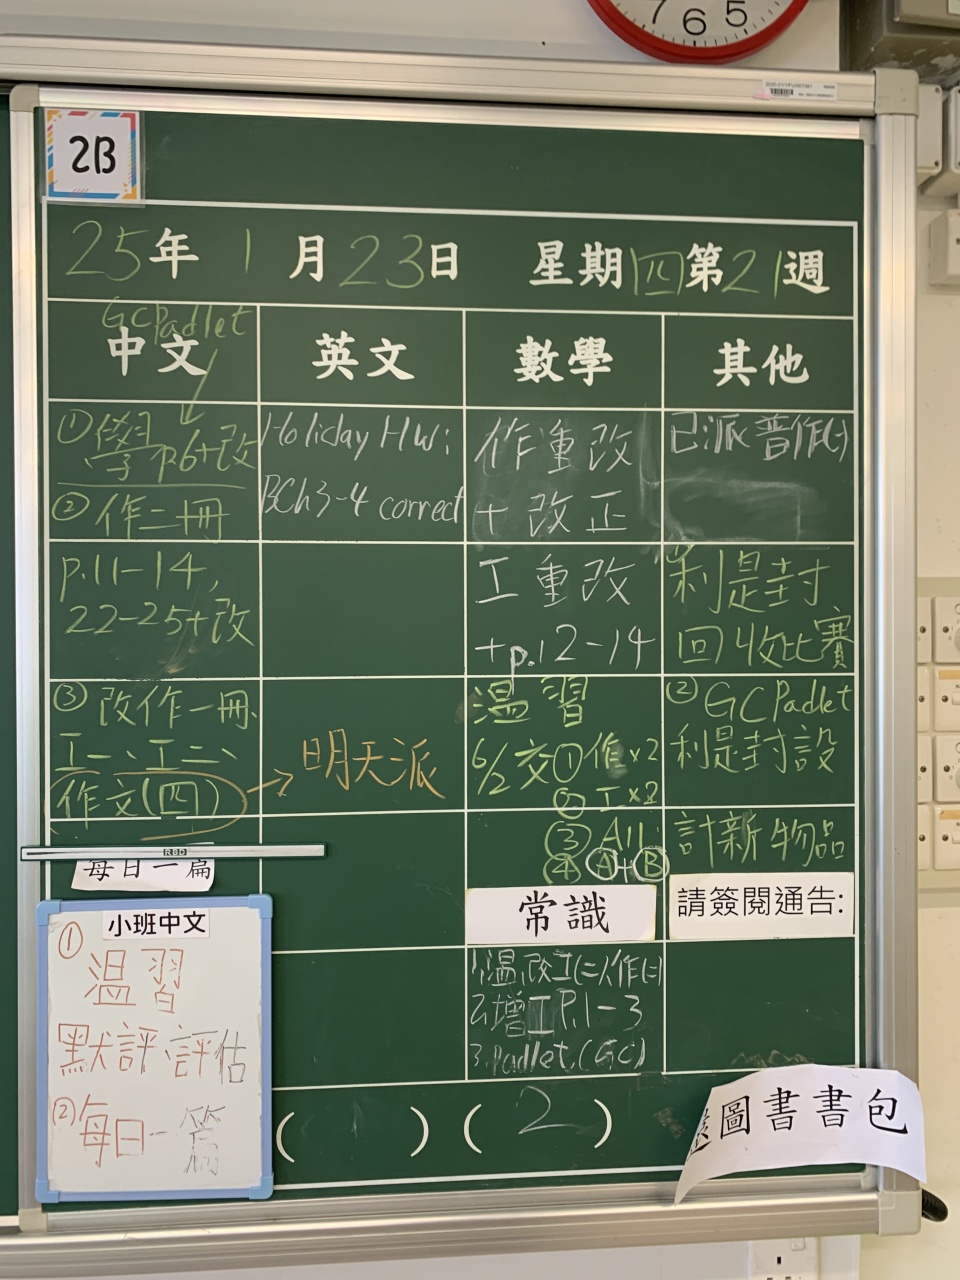 7 6 5
2B
25年1月23日 星期四第21週
GCPadlet
中文
英文
數學
其他
①學p6+改
②作二冊
p.11-14,
22-25+改
③改作一冊、
工一、工二、
作文(四)
每日一篇
小班中文
①
溫習
默評、評估
②每日一篇
Holiday HW:
BCh3-4 correct
明天派
作重改
+改正
工重改
+p.12-14
溫習
6/2交①作x2
②工x2
③All
④A+B
常識
1.溫,改工(二)作(二)
2.增工P.1-3
3.Padlet.(GC)
已派普作(二)
利是封
回收比賽
②GCPadlet
利是封設
計新物品
請簽閱通告:
( ) (2)
圖書書包
RBD